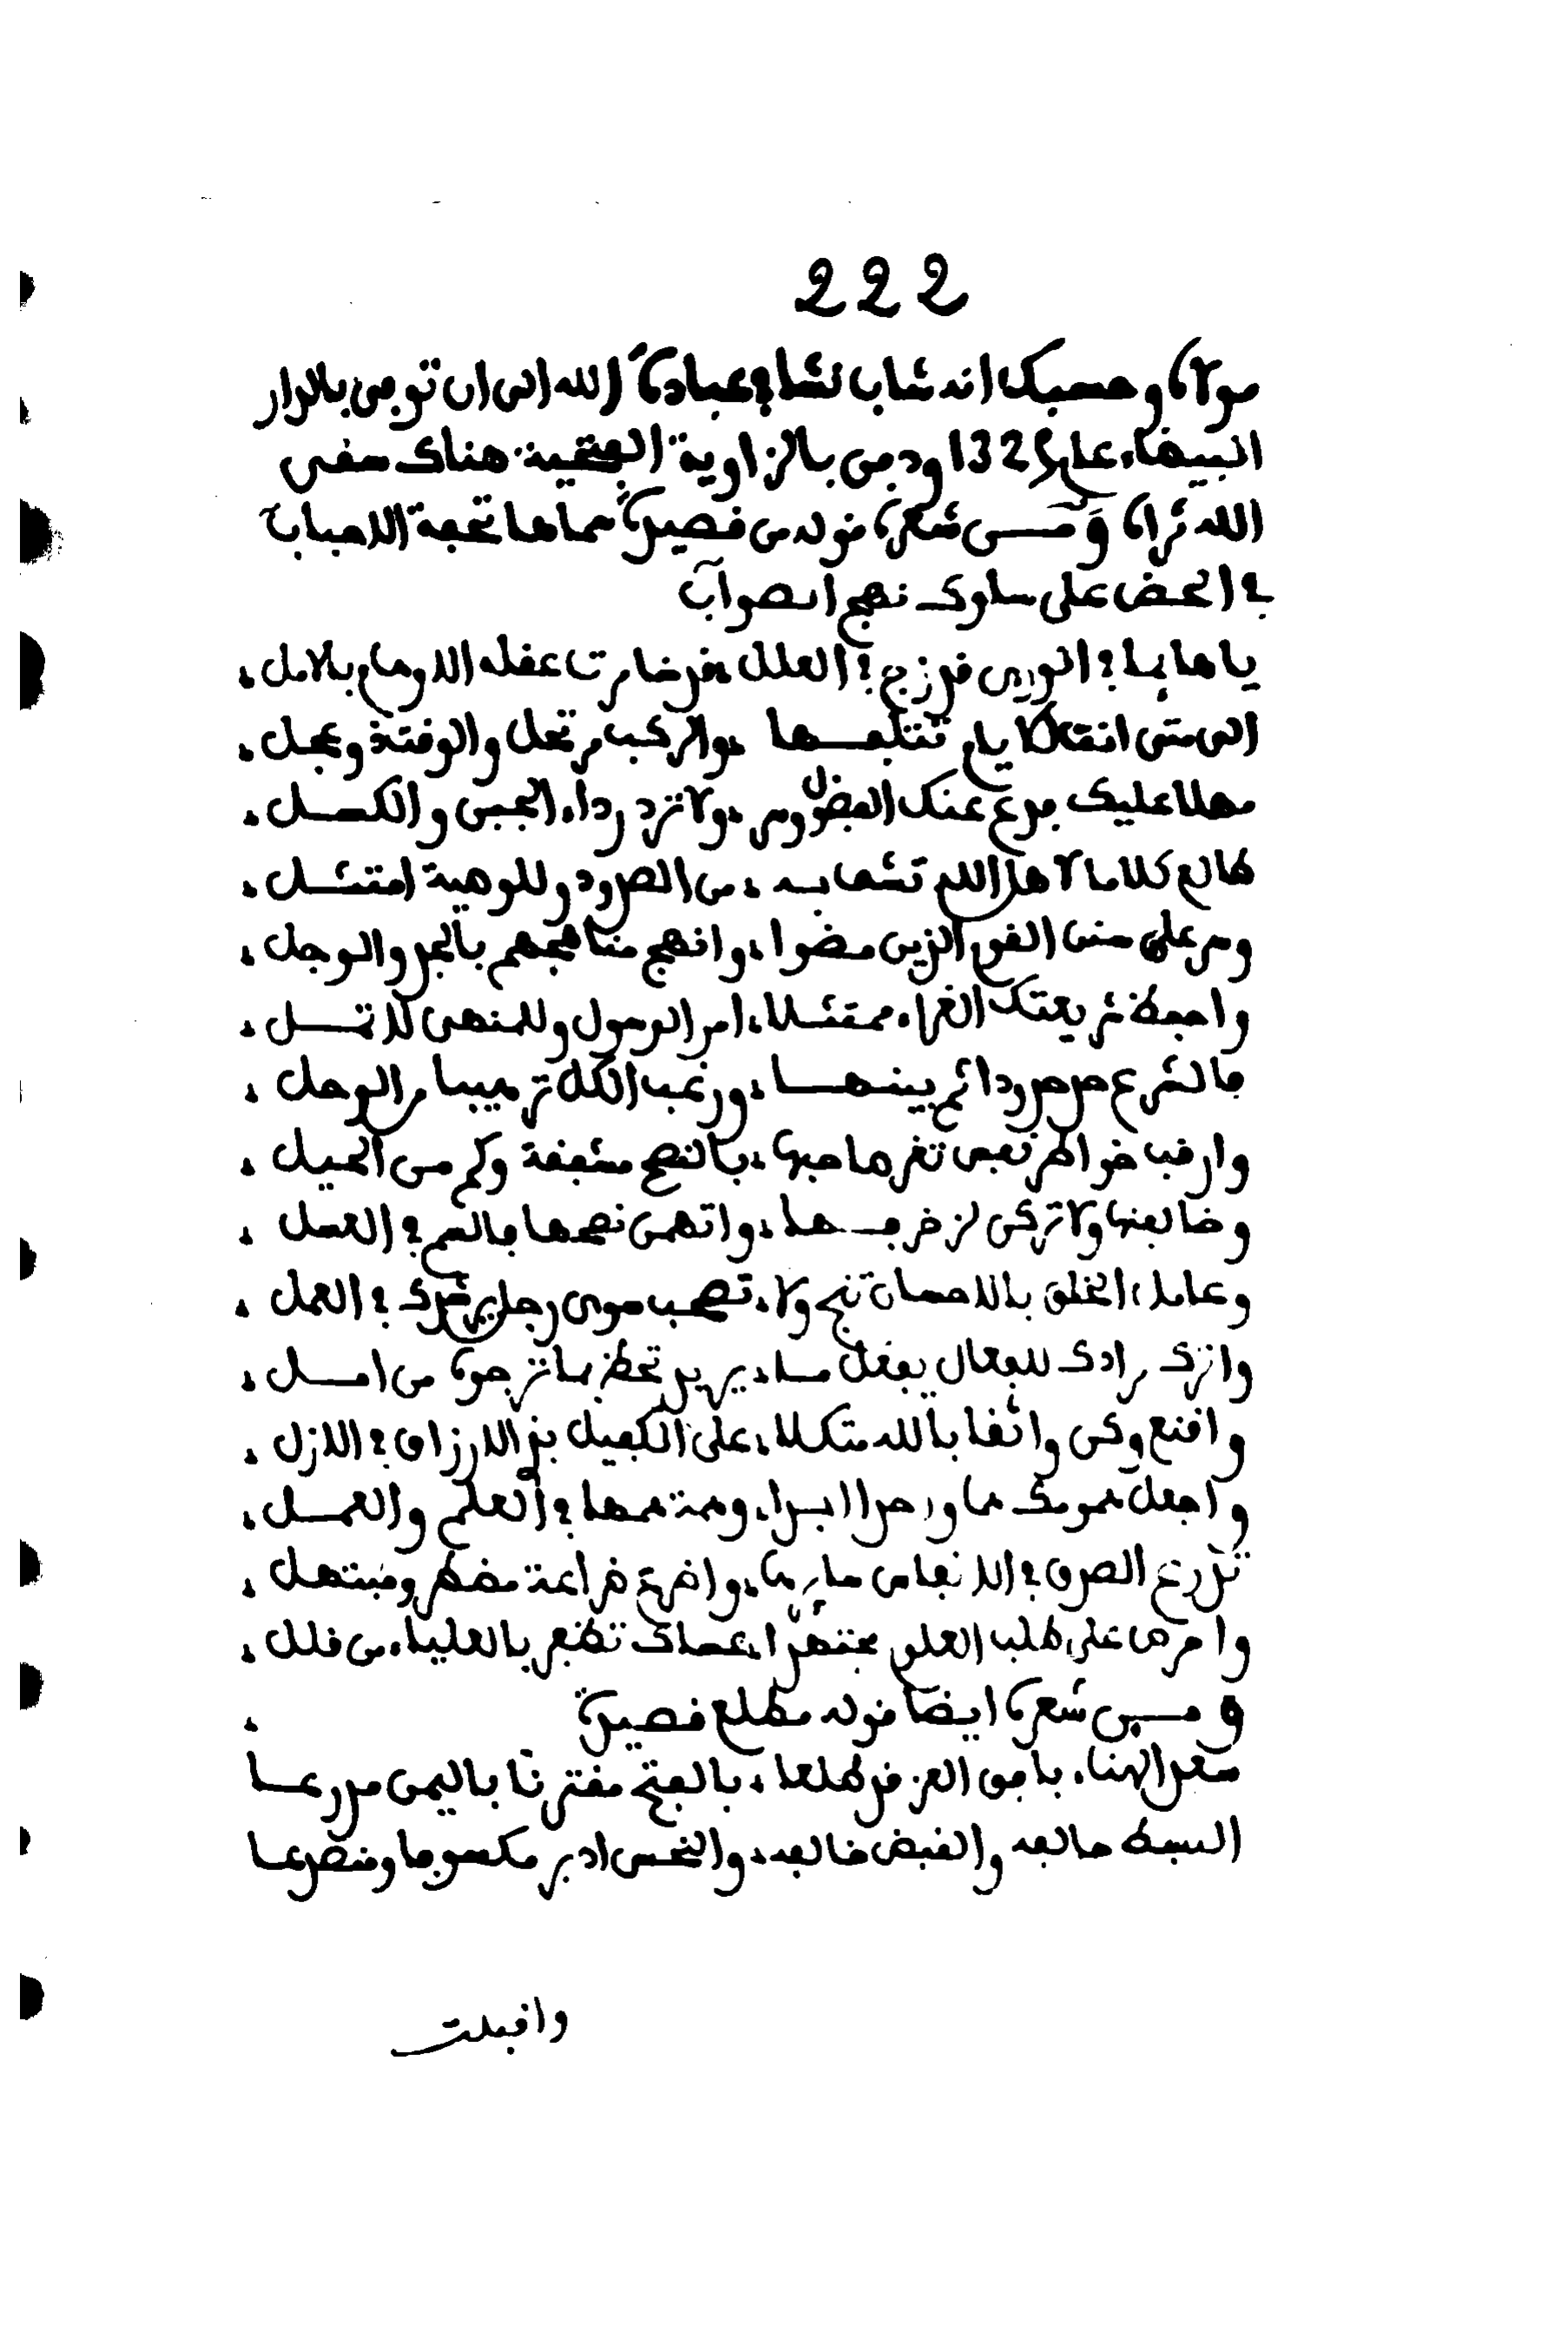 222
مولاه وحسبك انه شاب نشا في عبادة الله الى ان توفى بالدار
البيضاء عام 132 ودفن بالزاوية الفتحية هناك سقى
الله ثراه ومن شعره قوله من قصيدة سماها تحفة الاحباب
في الحض على سلوك نهج الصواب
يا هائما في الورى قد زج في العلل قد ضامرت عقله الاوهام بالامل
الى متى انت لا يام تتلفها والركب مرتحل والوقت في عجل
مهلا عليك فدع عنك الفضول ومر ولا ترد رداء الجبن والكسل
طالع كلاما لاهل الله تشف به من الصدود وللوصية امتثل
ومر على سنن القوم الذين مضوا وانهج مناهجهم بالجد والوجل
واحفظ شريعتك الغراء ممتثلا امر الرسول وللمنهى لا تمل
فالشرع حد حدودا ثم بينها ورغب الكل ترهيبا من الوحل
وارقب خواطر نفس تغر صاحبها بالنصح مشفقة وكم من الحيل
وخالفنها ولا تركن لزخرفها واتهمن نصحها فالسم في العسل
وعامل الخلق بالاحسان تنج ولا تصحب سوى رجل يرشدك في العمل
واترك مرادك للفعال يفعل ما يريد تحظ بما ترجوه من امل
واقنع وكن واثقا بالله متكلا على الكفيل بذي الارزاق في الازل
واجعل همومك هما واحدا ابدا وهمة همها في العلم والعمل
تدرع الصدق في الانفاس سائرها واضرع ضراعة مضطر ومبتهل
واحرص على طلب العلوم مجتهدا عساك تظفر بالعلياء من قلل
ومن شعره ايضا قوله مطلع قصيدة
سعد الهناء بافق العز قد طلعا بالفتح مقترنا باليمن مدرعا
البسط حالفه والقبض خالفه والنحس ادبر مكسوفا ومنصدعا
واقبلت